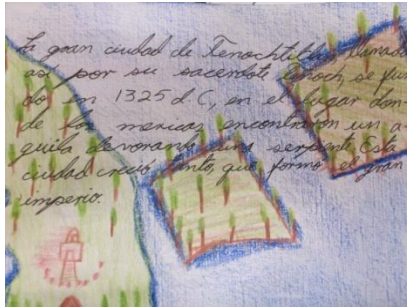 La gran ciudad de Tenochtitlan, llamada
así por su sacerdote Tenoch, se fun
do en 1325 d.C, en el lugar don-
de los mexicas encontraron un a-
guila devorando una serpiente. Esta
ciudad creció tanto, que formo el gran
imperio.